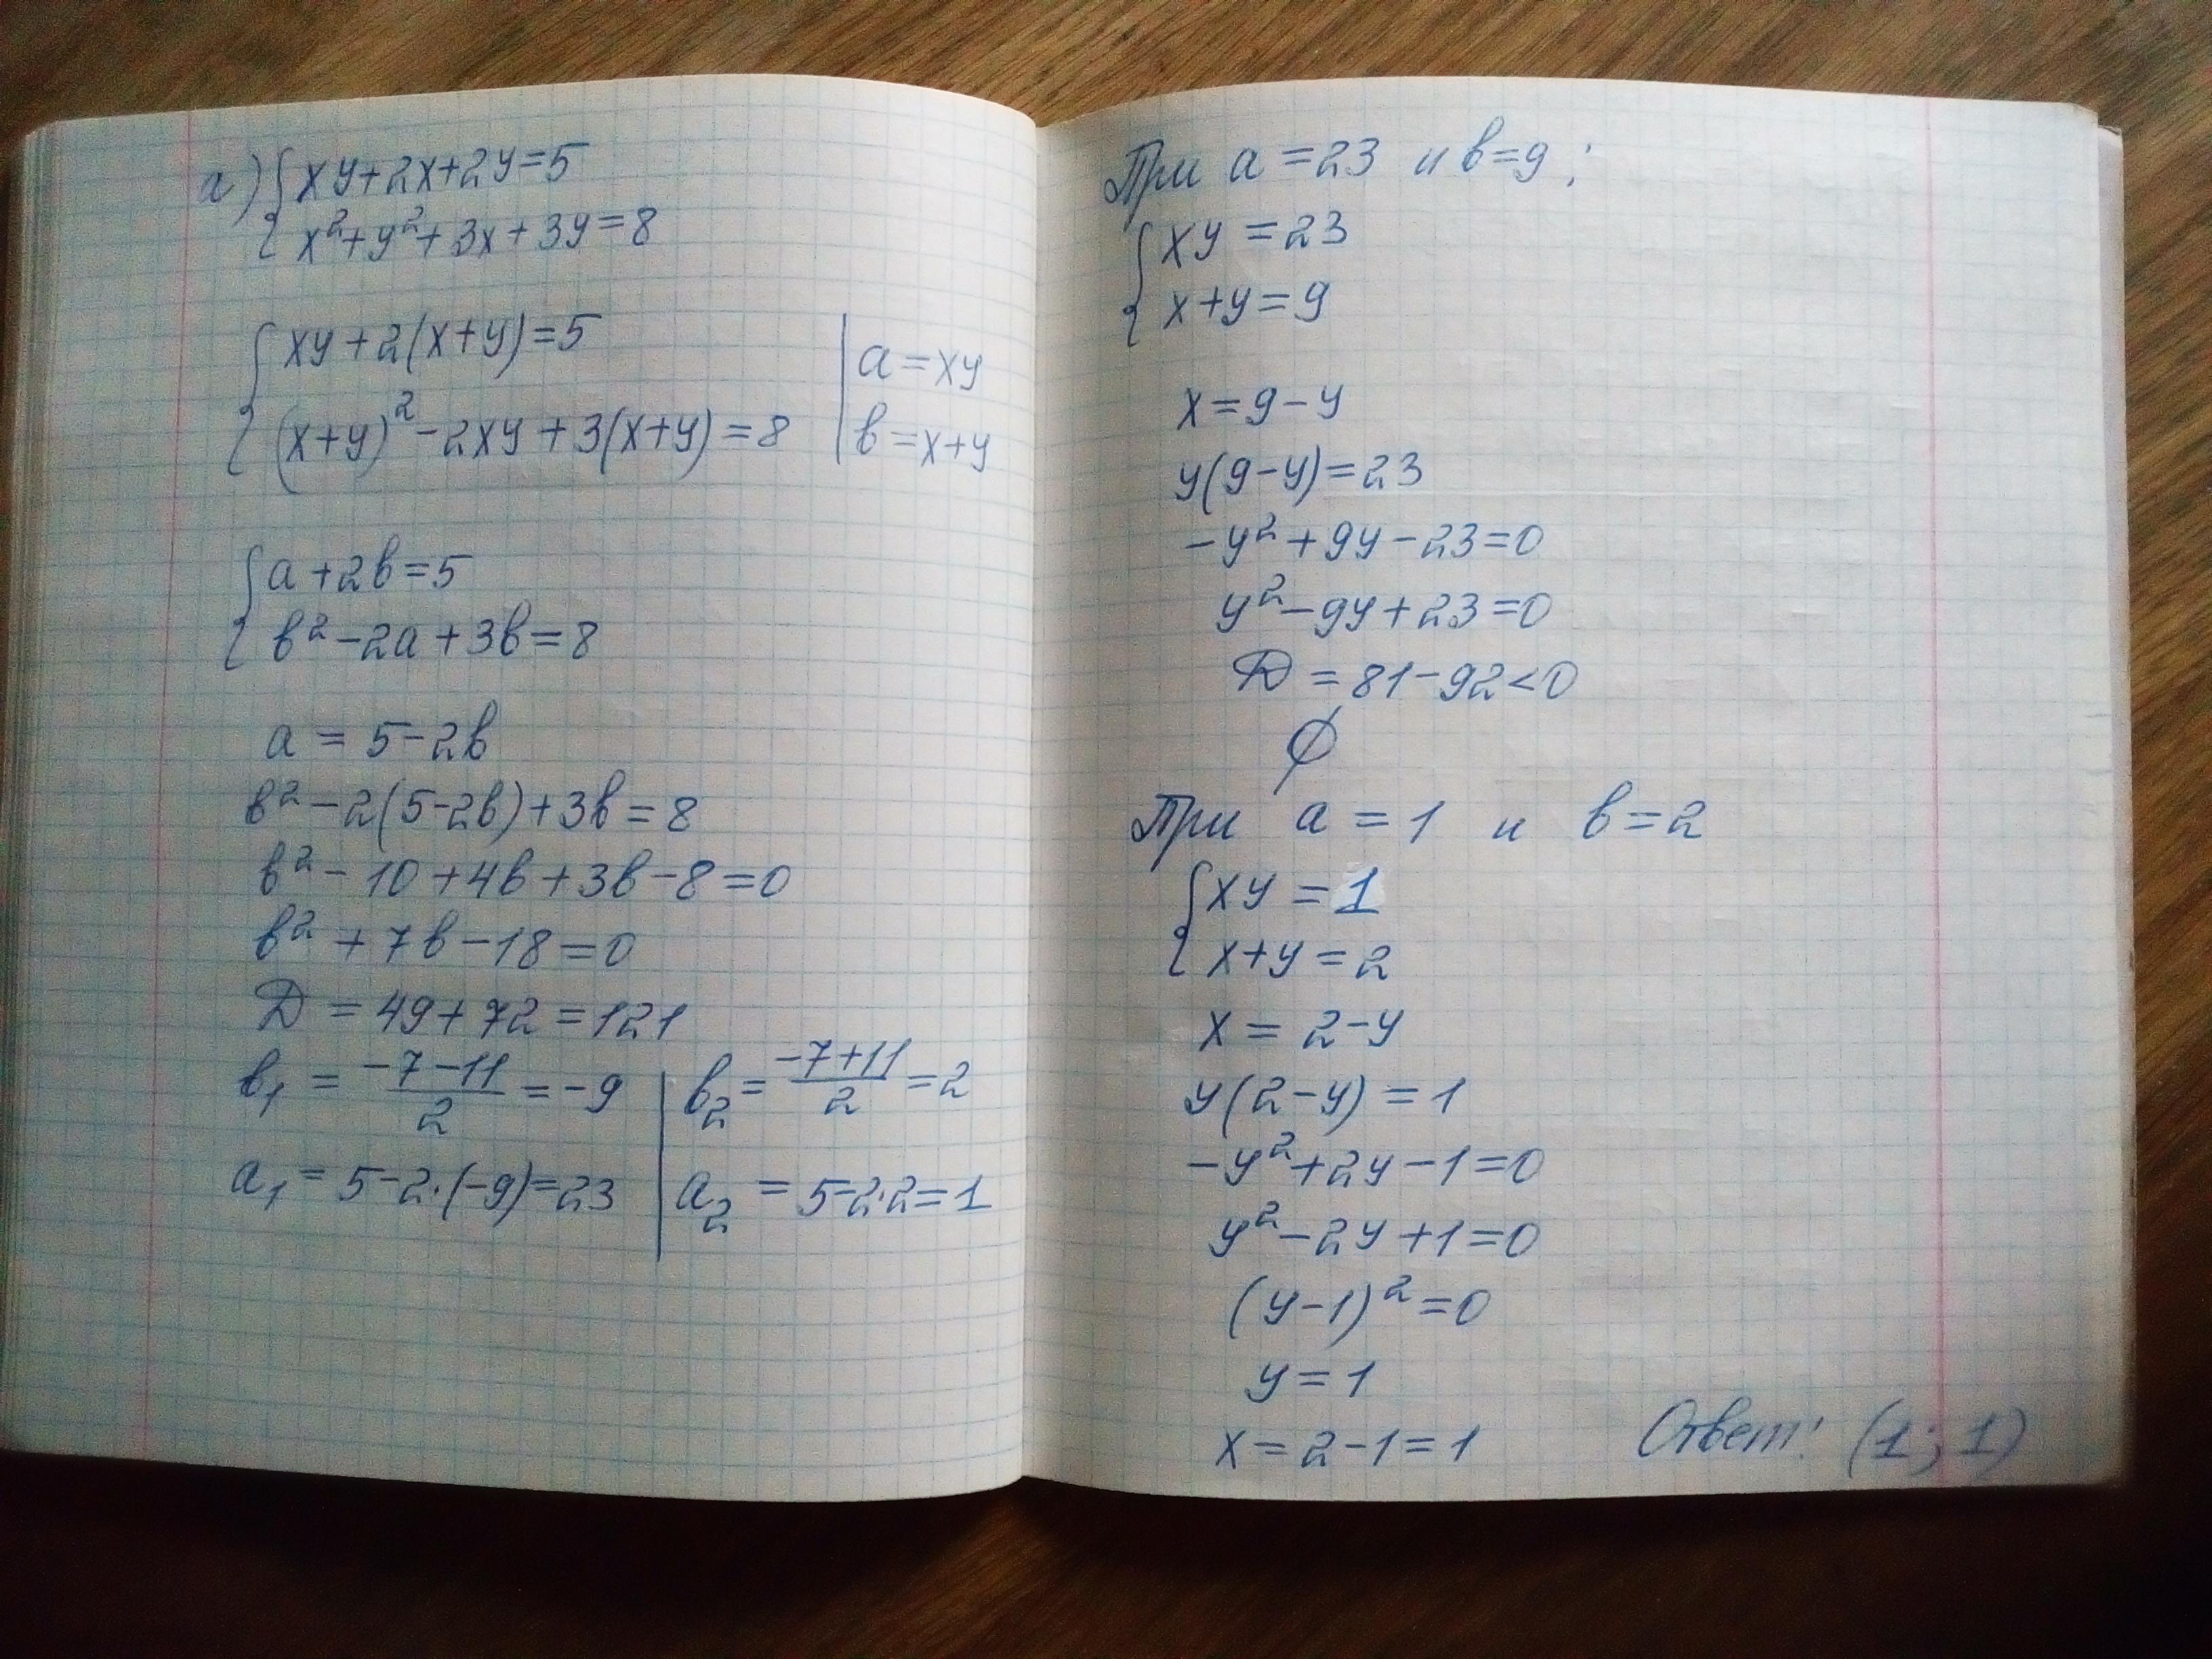 а) { xy+2x+2y=5
x²+y²+3x+3y=8
{ xy+2(x+y)=5
(x+y)²-2xy+3(x+y)=8
| a=xy
b=x+y
{ a+2b=5
b²-2a+3b=8
a=5-2b
b²-2(5-2b)+3b=8
b²-10+4b+3b-8=0
b²+7b-18=0
Д=49+72=121
b₁=(-7-11)/2=-9 | b₂=(-7+11)/2=2
a₁=5-2·(-9)=23 | a₂=5-2·2=1
При a=23 и b=9;
{ xy=23
x+y=9
x=9-y
y(9-y)=23
-y²+9y-23=0
y²-9y+23=0
Д=81-92<0
∅
При a=1 и b=2
{ xy=1
x+y=2
x=2-y
y(2-y)=1
-y²+2y-1=0
y²-2y+1=0
(y-1)²=0
y=1
x=2-1=1
Ответ: (1;1)